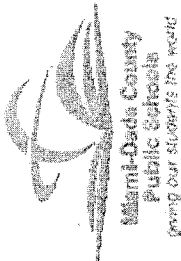 Miami-Dade County
Public Schools
giving our students the world